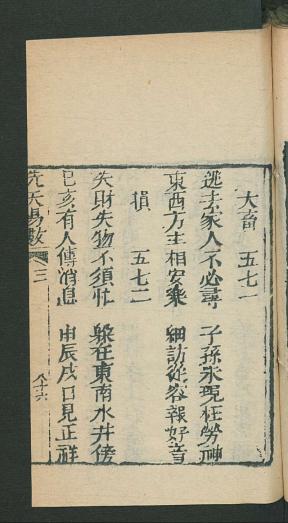 大畜 五七一
逃去家人不必尋 子孫未現枉勞神
東西方主相安樂 細訪從容報好音
損 五七二
失財失物不須忙 躲在東南水井傍
巳亥有人傳消息 申辰戌日見正祥
先天易数 三 八十六